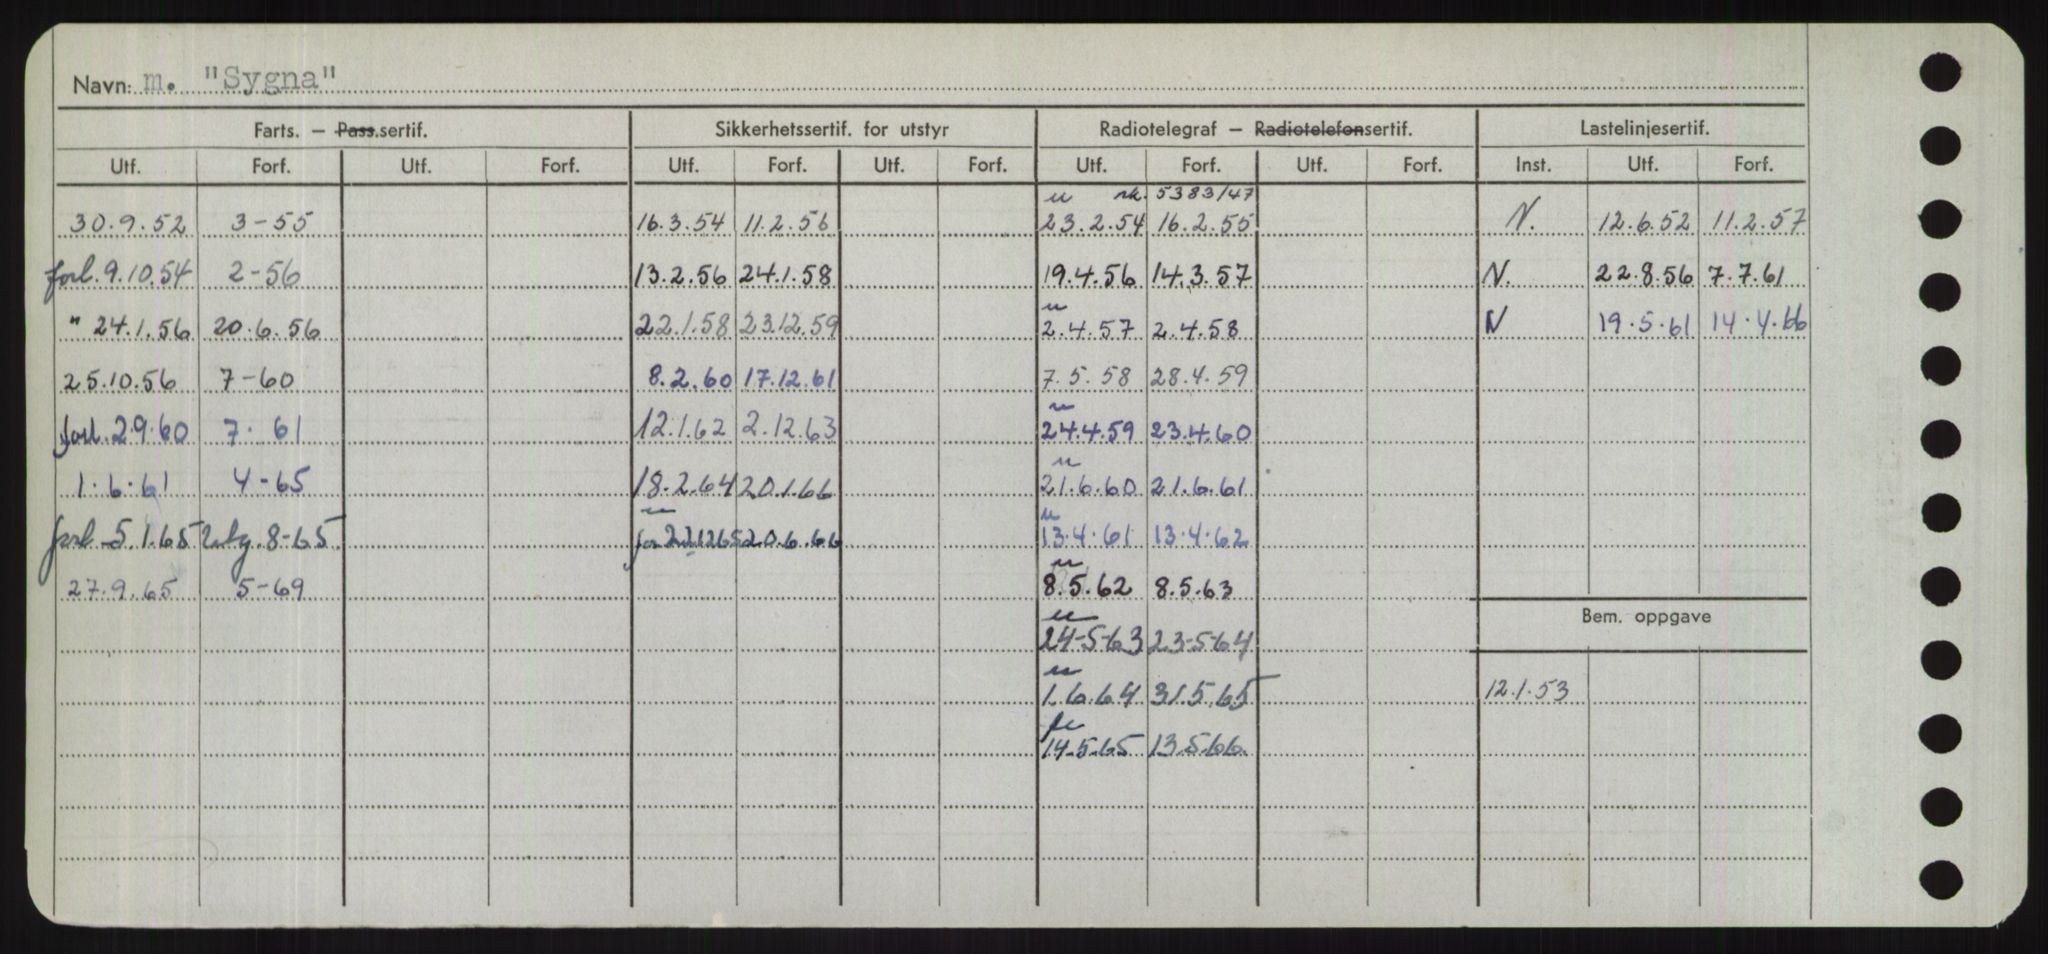 Navn: m. "Sygna"
Farts. – Pass.sertif. Sikkerhetssertif. for utstyr Radiotelegraf – Radiotelefonsertif. Lastelinjesertif.
Utf. Forf. Utf. Forf. Utf. Forf. Utf. Forf. Utf. Forf. Utf. Forf. Inst. Utf. Forf.
u rk. 5383/47
30.9.52 3-55 16.3.54 11.2.56 23.2.54 16.2.55 N. 12.6.52 11.2.57
forl. 9.10.54 2-56 13.2.56 24.1.58 19.4.56 14.3.57 N. 22.8.56 7.7.61
u
" 24.1.56 20.6.56 22.1.58 23.12.59 2.4.57 2.4.58 N 19.5.61 14.4.66
25.10.56 7-60 8.2.60 17.12.61 7.5.58 28.4.59
u
forl. 2.9.60 7. 61 12.1.62 2.12.63 24.4.59 23.4.60
u
1.6.61 4-65 18.2.64 20.1.66 21.6.60 21.6.61
u u
forl 5.1.65 8-65 20.6.66 13.4.61 13.4.62
u
27.9.65 5-69 8.5.62 8.5.63
Bem. oppgave
u
24-5-63 23-5-64
u
1.6.64 31.5.65 12.1.53
14.5.65 13.5.66